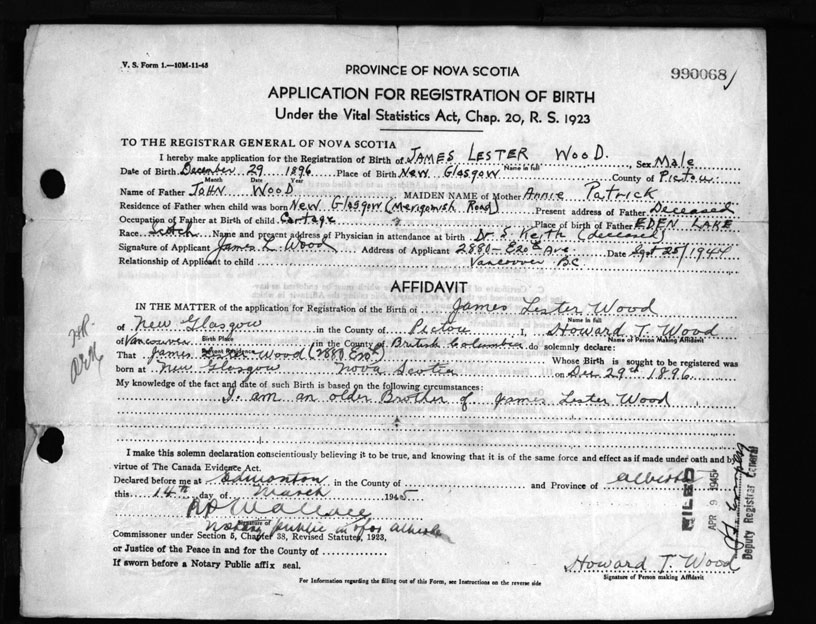 V. S. Form 1.—10M-11-45
990068
PROVINCE OF NOVA SCOTIA
APPLICATION FOR REGISTRATION OF BIRTH
Under the Vital Statistics Act, Chap. 20, R. S. 1923
TO THE REGISTRAR GENERAL OF NOVA SCOTIA
I hereby make application for the Registration of Birth of JAMES LESTER WOOD. Sex Male
Name in full
Date of Birth December 29 1896 Place of Birth New Glasgow County of Pictou
Month Date Year
Name of Father JOHN WOOD MAIDEN NAME of Mother Annie Patrick
Residence of Father when child was born New Glasgow (Merigomish Road) Present address of Father Deceased
Occupation of Father at Birth of child Cartage Place of birth of Father EDEN LAKE
Race Scotch Name and present address of Physician in attendance at birth Dr. S. Keith (deceased)
Signature of Applicant James L. Wood Address of Applicant 2880 - E 20th Ave. Date Sept 25/1944
Relationship of Applicant to child Vancouver B.C.
AFFIDAVIT
IN THE MATTER of the application for Registration of the Birth of James Lester Wood
Name in full
of New Glasgow in the County of Pictou I, Howard T. Wood
Birth Place Name of Person Making Affidavit
of Vancouver in the County of British Columbia do solemnly declare:
That James Lester Wood (2880 E 20th) Whose Birth is sought to be registered was
born at New Glasgow Nova Scotia on Dec 29th 1896
My knowledge of the fact and date of such Birth is based on the following circumstances:
I am an older Brother of James Lester Wood
I make this solemn declaration conscientiously believing it to be true, and knowing that it is of the same force and effect as if made under oath and by
virtue of The Canada Evidence Act.
Declared before me at Edmonton in the County of and Province of Alberta
this 14th day of March 1945
Wallace
Signature of
Notary public in & for Alberta
Commissoner under Section 5, Chapter 38, Revised Statutes, 1923,
or Justice of the Peace in and for the County of
If sworn before a Notary Public affix seal.
Howard T. Wood
Signature of Person making Affidavit
For Information regarding the filling out of this Form, see Instructions on the reverse side
FILED
APR 9 1945
Deputy Registrar General